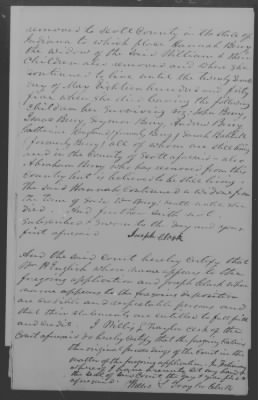 removed to Scott County in the State of
Indiana to which place Hannah Berry
the widow of the said William & their
Children also removed and where she
continued to live until the twenty
day of May Eighteen hundred and forty
five when she died leaving the following
Children her surviving viz. John Berry
James Berry, Berry, Andrew Berry
Catharine (formerly Berry) Sarah
(formerly Berry) all of whom are still living
and in the County of Scott aforesaid - also
Abraham Berry who has removed from this
County but is believed to be still living -
the said Hannah continued a widow from
the time of said Wm Berry's death until she
died - And further saith not.
Subscribed & Sworn to the day and year
first aforesaid
Joseph Clark
And the said Court hereby certify that
Wm H English whose name appears to the
foregoing application and Joseph Clark whose
name appears to the foregoing deposition
are credible and respectable persons and
that their statements are entitled to full faith
and credit. I Willis L Traylor Clerk of the
Court aforesaid do hereby certify that the foregoing contains
the original proceedings of the Court in the
matter of the foregoing application In Testimony
whereof I have hereunto set my hand &
the Seal of said Court the day & year first
aforesaid.
Willis L Traylor Clerk